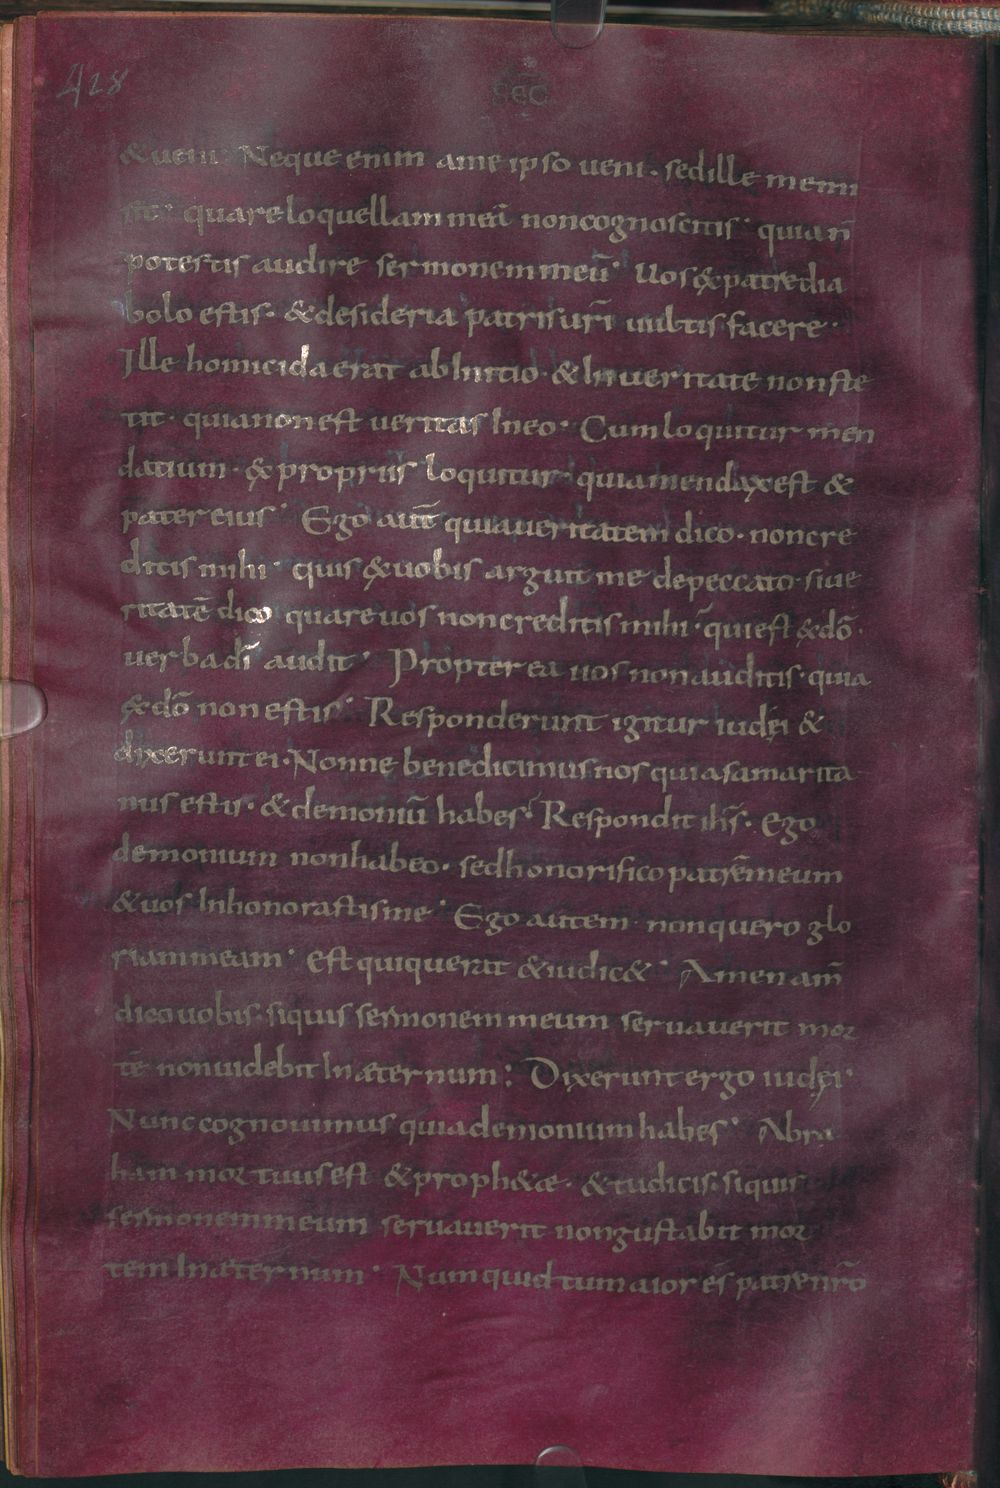 428
SEC
& veni · Neque enim ame ipso veni · sed ille me mi
sit · quare loquellam meā non cognoscitis · quia n̄
potestis audire sermonem meū · Uos ex patre dia
bolo estis · & desideria patris ur̄i uultis facere ·
Ille homicida erat ab Initio · & In veritate non ste
tit · quia non est veritas In eo · Cum loquitur men
datium · ex propriis loquitur quia mendax est &
pater eius · Ego aut̄ quia veritatem dico · non cre
ditis mihi · quis ex uobis arguit me de peccato · si ue
ritatē dico quare uos non creditis mihi · qui est ex dō ·
uerba dī audit · Propter ea uos non auditis · quia
ex dō non estis · Responderunt igitur iudęi &
dixerunt ei · Nonne benedicimus nos quia samarita
nus estis · & demoniū habes · Respondit ihs̄ · Ego
demonium non habeo · sed honorifico patrēmeum
& uos Inhonorastis me · Ego autem non quero glo
riam meam · est qui querat & iudic& · Amen am̄
dico uobis · siquis sermonem meum seruauerit mor
tē non uidebit In æternum : Dixerunt ergo iudęi ·
Nunc cognouimus quia demonium habes · Abra
ham mortuus est & proph&æ · & tu dicis · siquis
sermonem meum seruauerit non gustabit mor
tem In æternum · Numquid tu maior es patre nr̄o